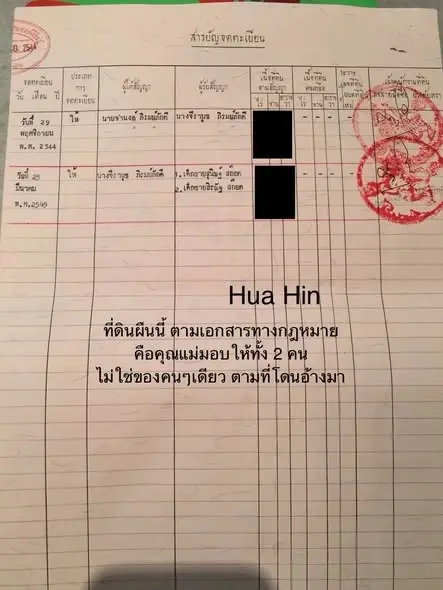 สารบัญจดทะเบียน
พ.ศ. 2544
จดทะเบียน
วัน เดือน ปี
ประเภท
การ
จดทะเบียน
ผู้ให้สัญญา
ผู้รับสัญญา
เนื้อที่ดิน
ตามสัญญา
ไร่ งาน วา
เนื้อที่ดิน
คงเหลือ
ไร่ งาน วา
วันที่ 29
พฤศจิกายน
พ.ศ. 2544
ให้
นายจำนงค์ ภิรมย์ภักดี
นางจีรานุช ภิรมย์ภักดี
- - -
วันที่ 25
มีนาคม
พ.ศ.2545
ให้
นางจีรานุช ภิรมย์ภักดี
1.เด็กชายสุนิษฐ์ สก๊อต
2.เด็กชายสิรณัฐ สก๊อต
- - -
Hua Hin
ที่ดินผืนนี้ ตามเอกสารทางกฎหมาย
คือคุณแม่มอบให้ทั้ง 2 คน
ไม่ใช่ของคนๆเดียว ตามที่โดนอ้างมา